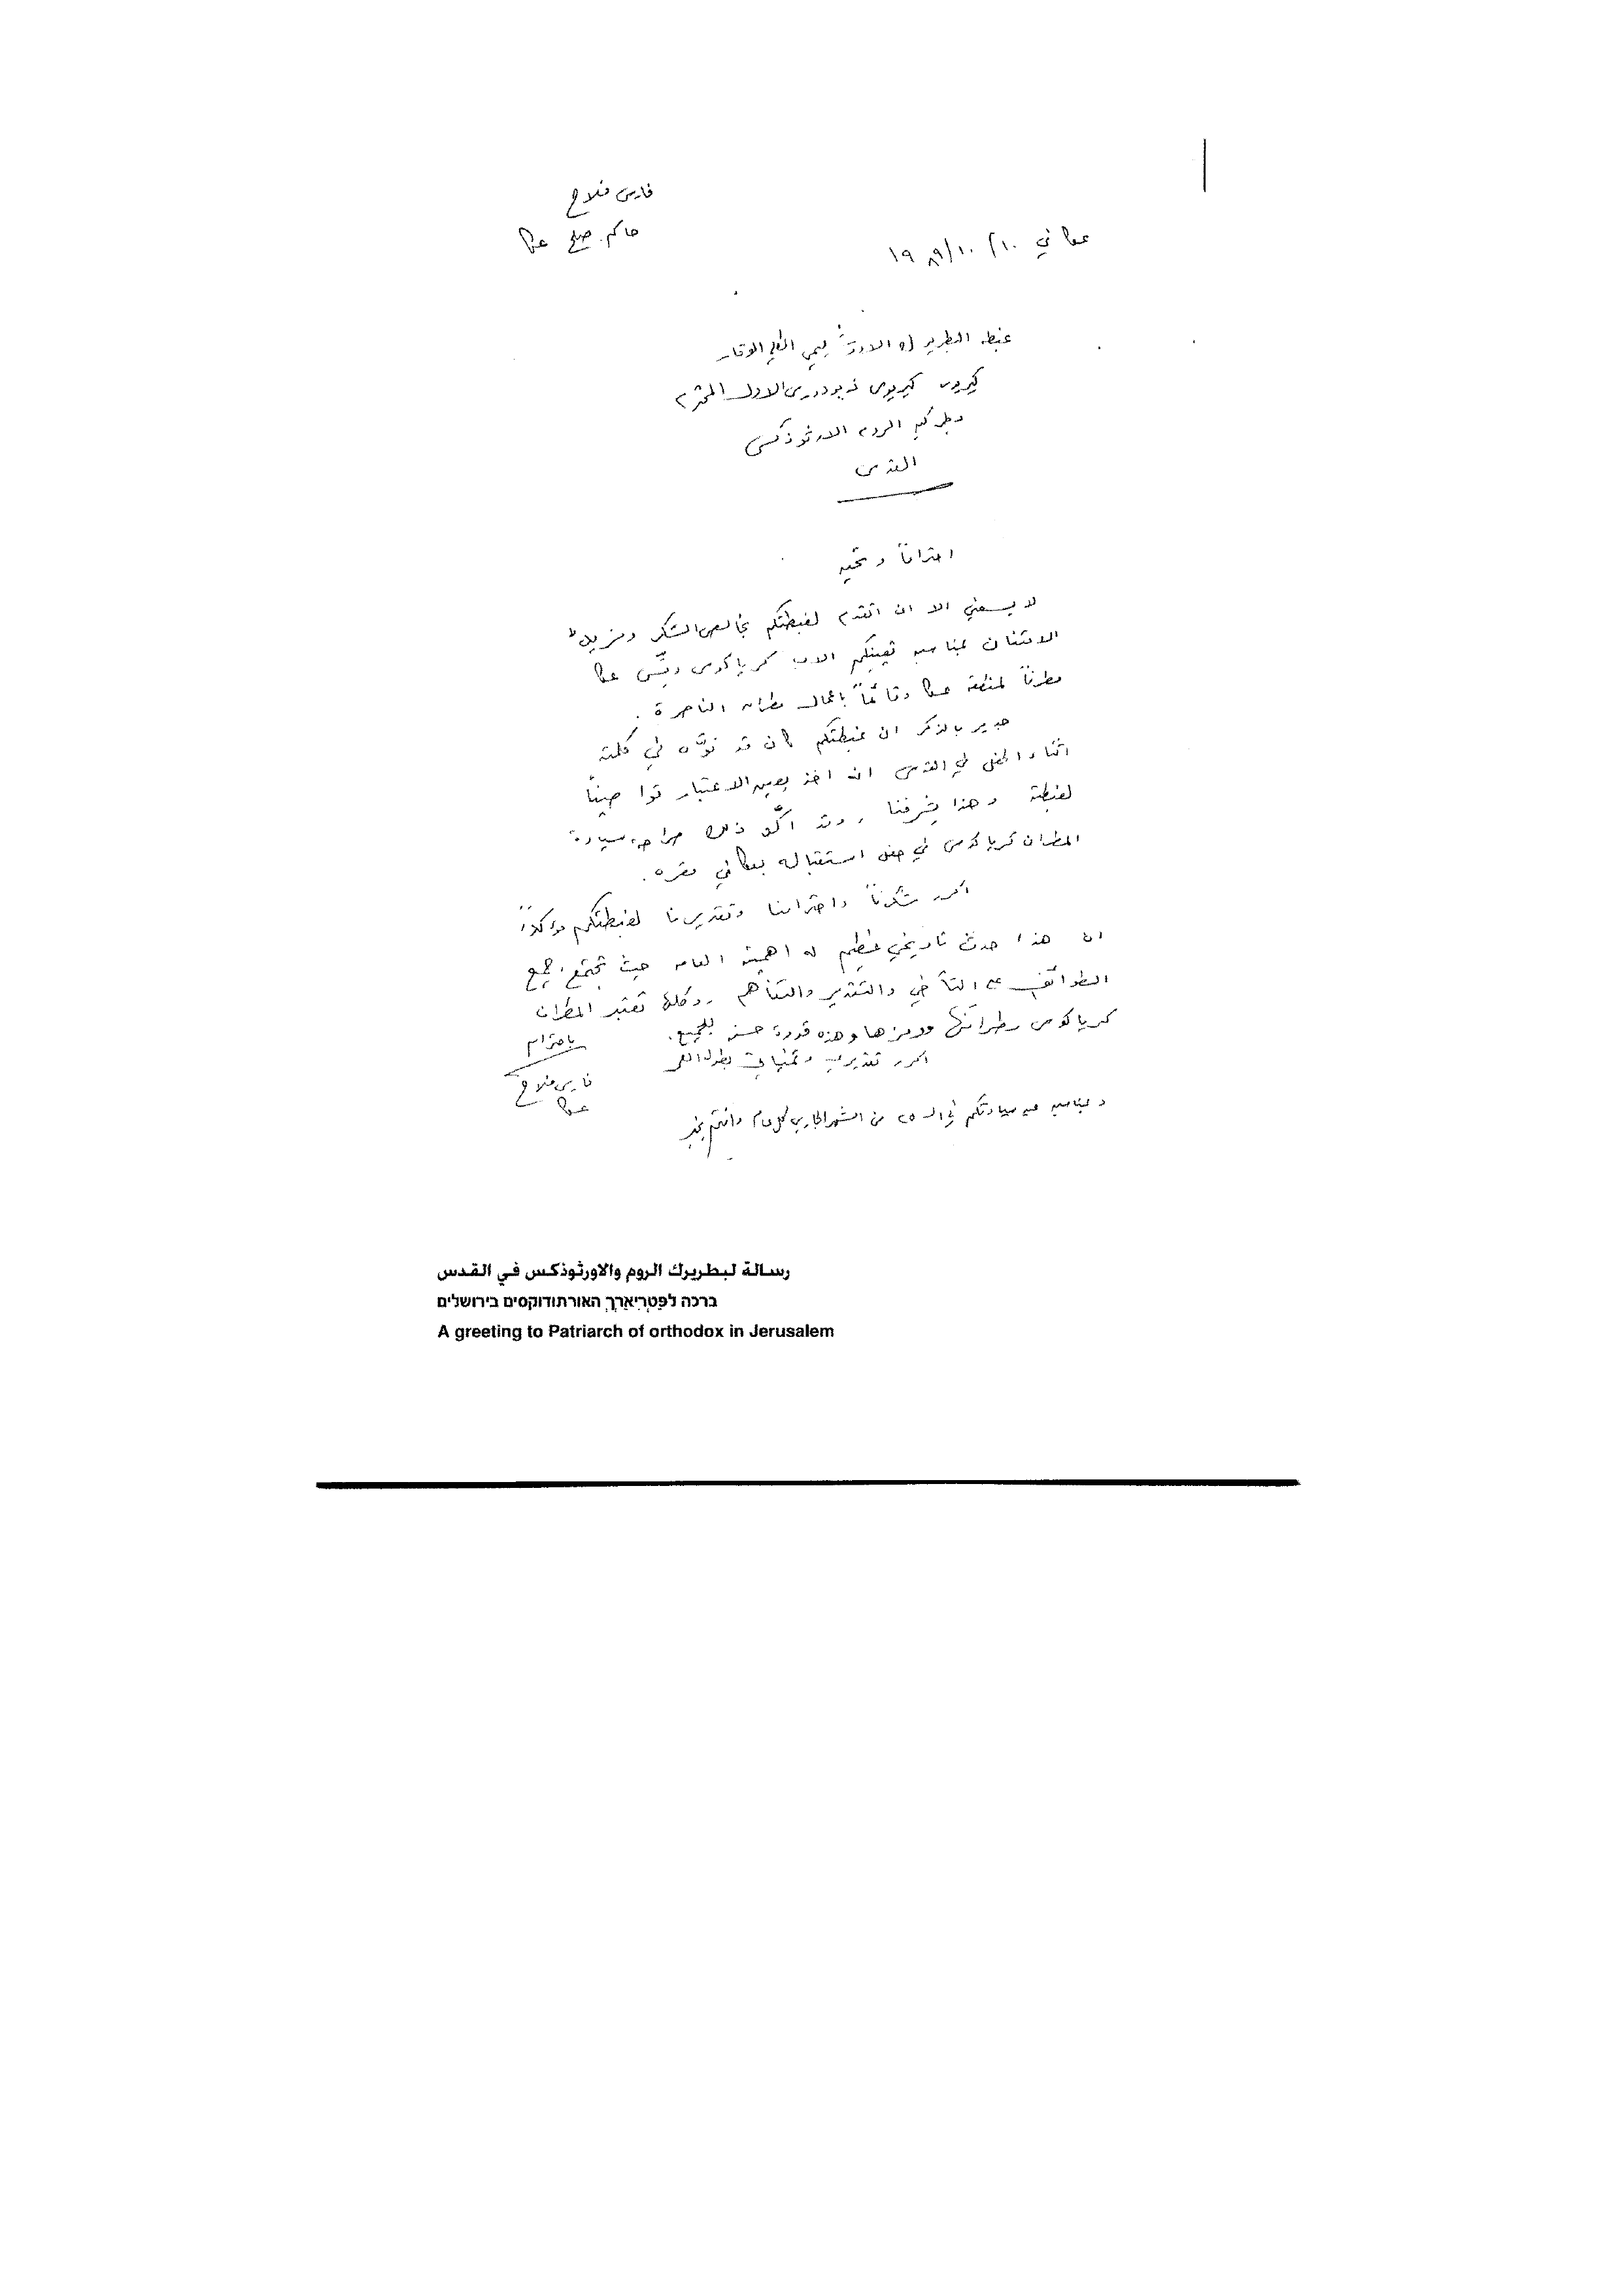 فارس فلاح
حاكم صلح عكا
عكا في ١٠/١٠/١٩٨٩
غبطة البطريرك الكلي الوقار
كيريوس كيريوس ذيودوروس الاول المحترم
بطركية الروم الارثوذكس
القدس
احتراماً وتحيه
لا يسعني الا ان اتقدم لغبطتكم بخالص الشكر ومزيد
الامتنان بمناسبه تعيينكم الاب كرياكوس رئيس عكا
مطراناً لمنطقة عكا وقائماً باعمال مطران الناصرة .
جدير بالذكر ان غبطتكم كان قد نوّه في كلمته
اثناء الحفل في القدس انه اخذ بعين الاعتبار
لغبطته وهذا يشرفنا ، وقد اكّد ذلك صراحه سيادة
المطران كرياكوس في حفل استقباله بعكا في مقره .
اكرر شكرنا واحترامنا وتقديرنا لغبطتكم مؤكداً
ان هذا حدث تاريخي عظيم له اهميته العامه حيث تجتمع جميع
الطوائف على التآخي والتقدير والتفاهم ، وكلها تعتبر المطران
كرياكوس مطرانها ورمزها وهذه قدوة حسنه للجميع .
باحترام
اكرر تقديري وتمنياتي بطول العمر
فارس فلاح
عكا
وبمناسبه عيد سيادتكم في الـ ٢٥ من الشهر الجاري كل عام وانتم بخير
رسالة لبطريرك الروم والاورثوذكس في القدس
ברכה לפַטְרִיאַרְךְ האורתודוקסים בירושלים
A greeting to Patriarch of orthodox in Jerusalem